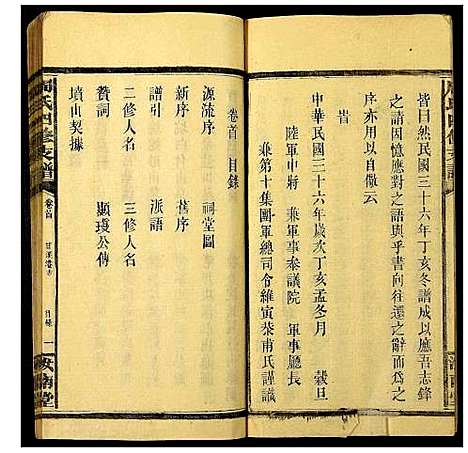 皆曰然民國三十六年丁亥冬譜成以應吾志鋒
之請因憶應對之語與乎書向往還之辭而為之
序亦用以自儆云
旹
中華民國三十六年歲次丁亥孟冬月　穀旦
陸軍中將　兼軍事參議院　軍事廳長
兼第十集團軍總司令維寅榮甫氏謹識
汝南堂
周氏四修支譜
卷首　目錄
源流序　祠堂圖
新序　舊序
譜引　派語
二修人名　三修人名
贊詞　顯璲公傳
墳山契據
周氏四修支譜
卷首
目錄　一
汝南堂